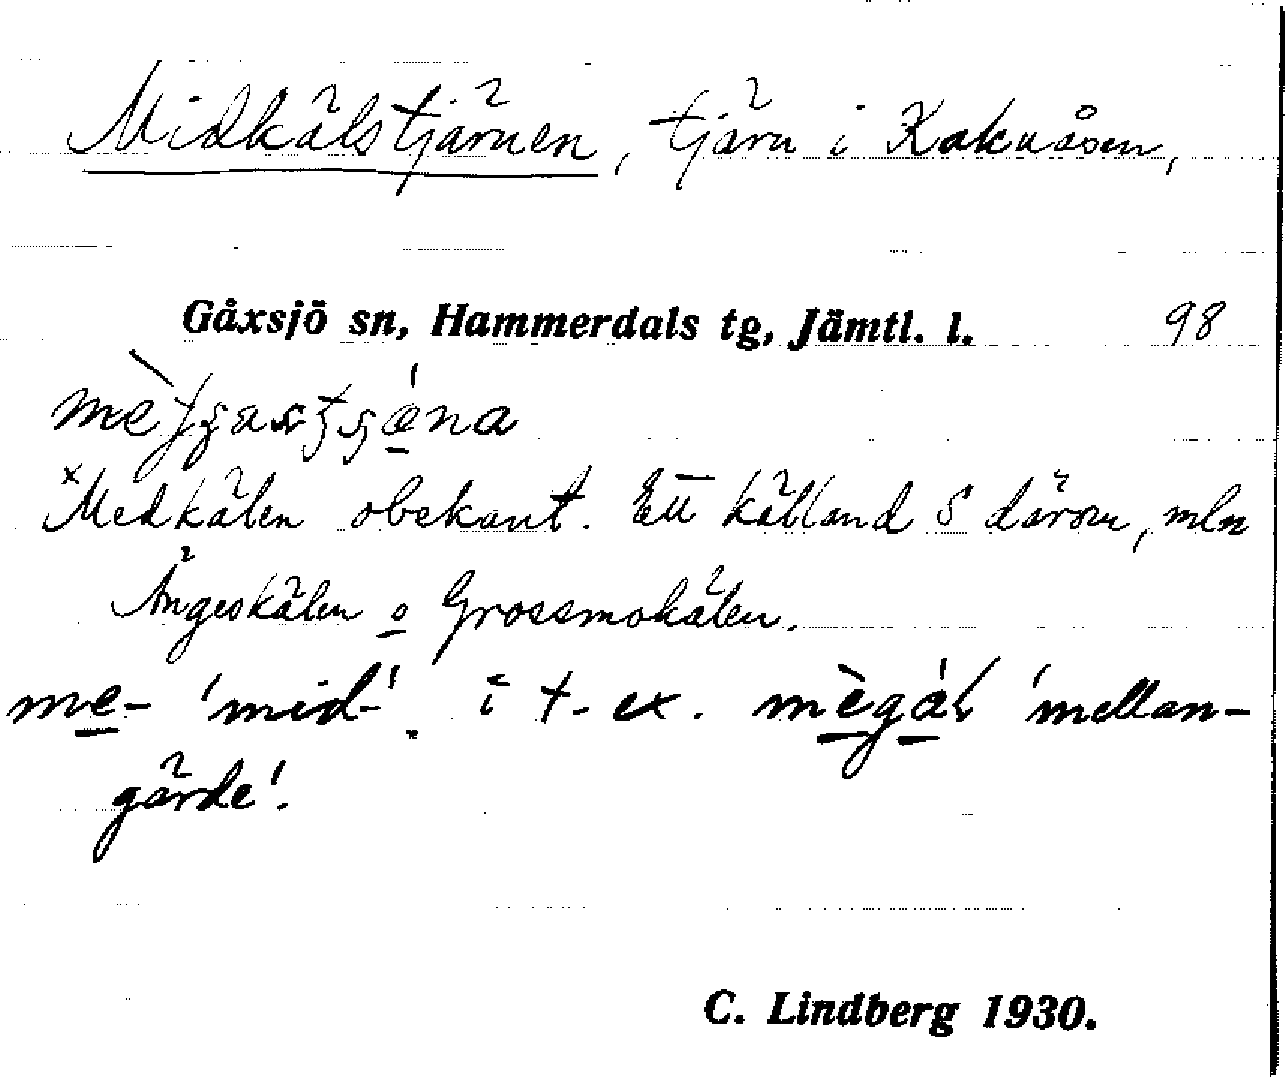 Midkälstjärnen, tjärn i Kakuåsen,
Gåxsjö sn, Hammerdals tg, Jämtl. l. 98
xMedkälen obekant. Ett källand S därom, mln
Ängeskälen o Grossmokälen.
me- 'mid-'. i t. ex. 'mellan-
gärde'.
C. Lindberg 1930.